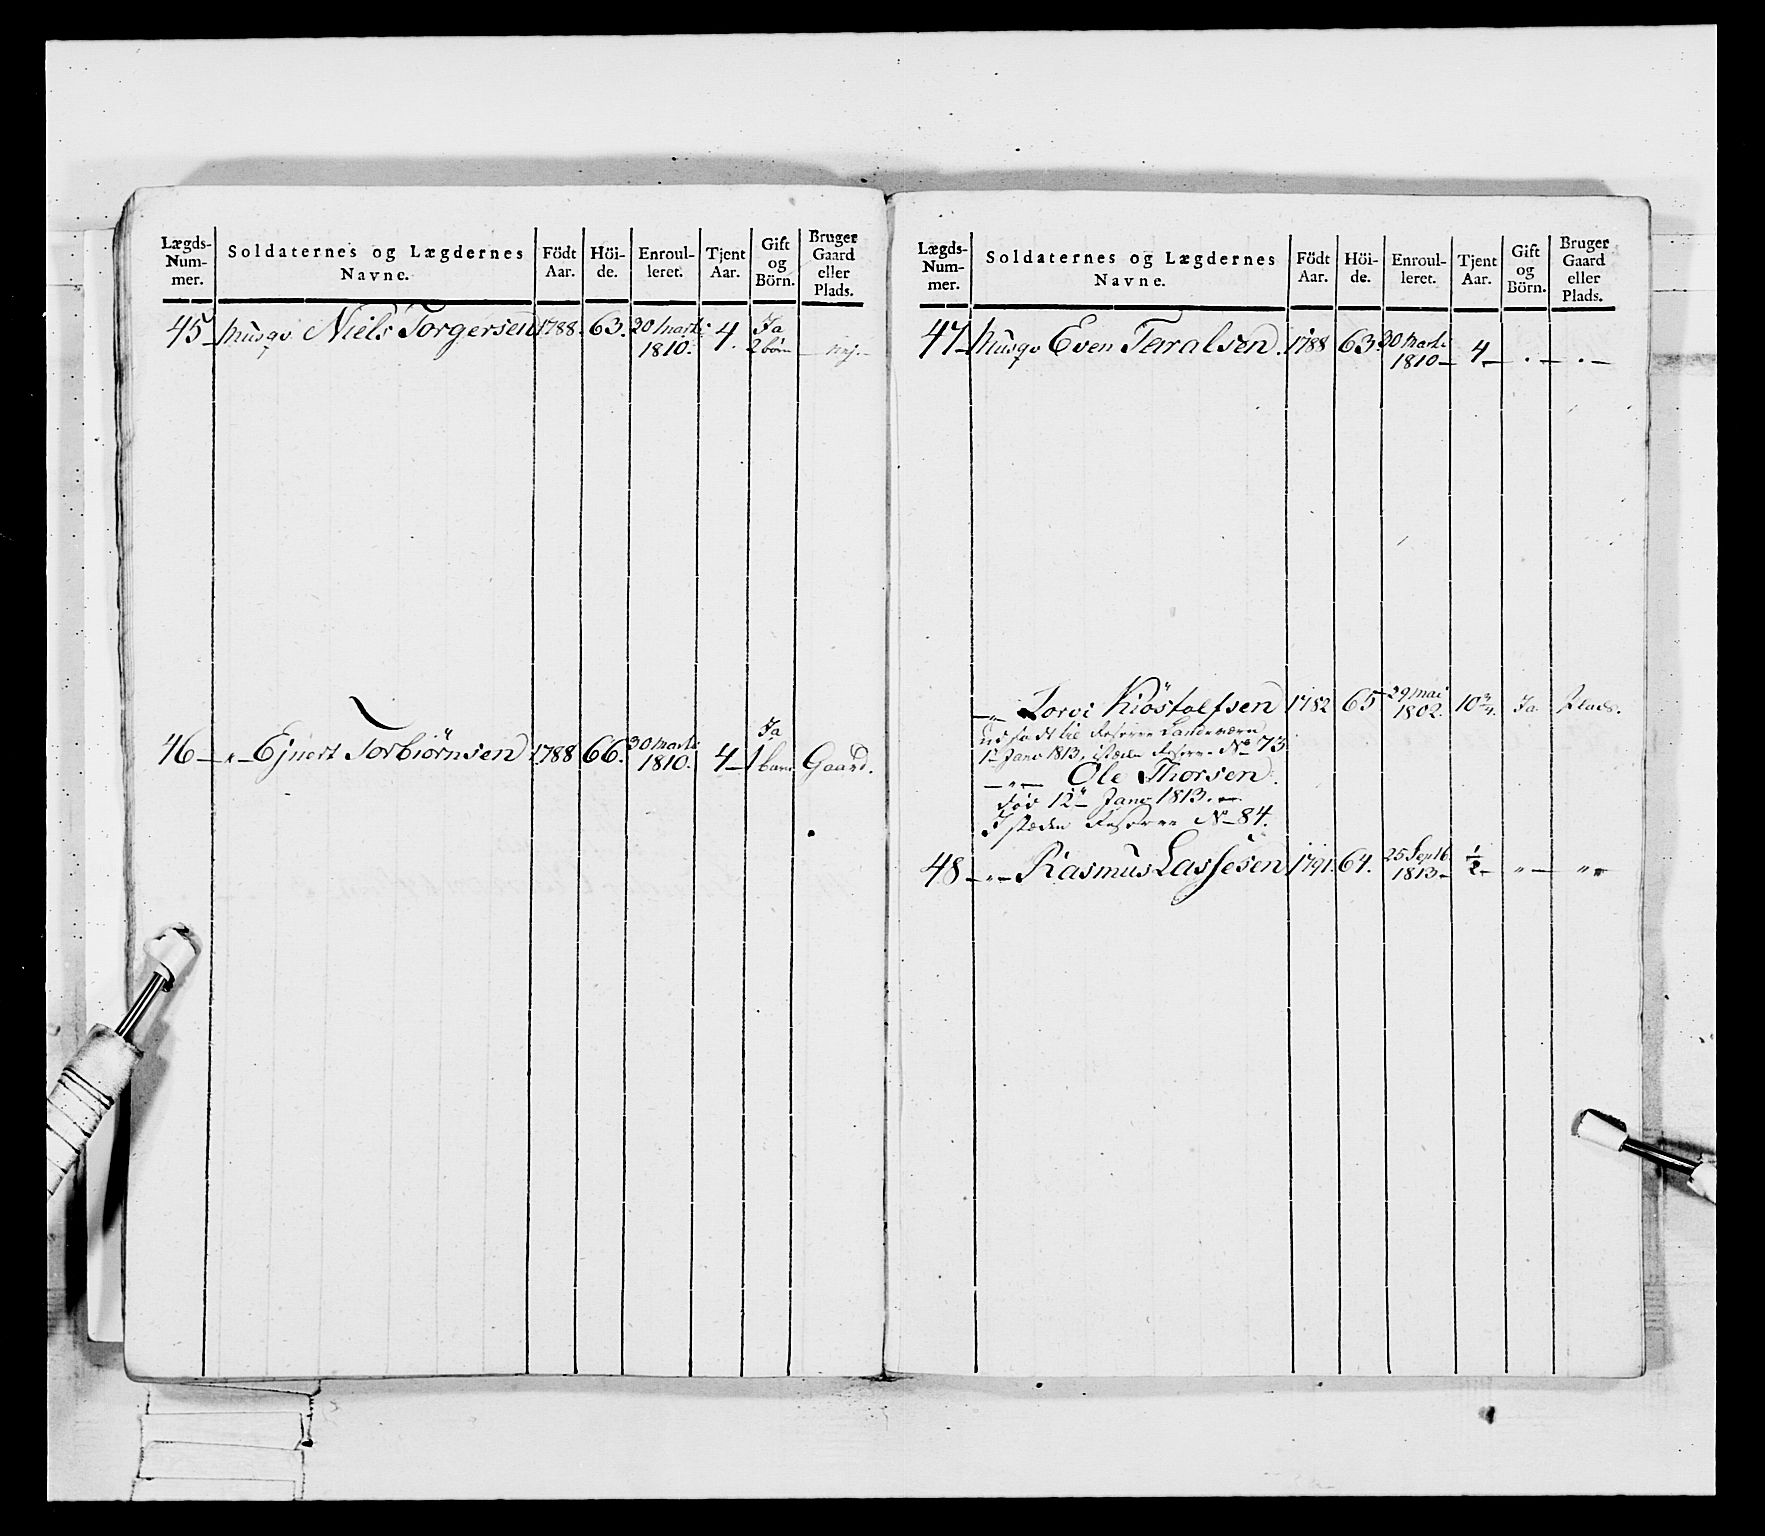 Lægds-Num-mer. Soldaternes og Lægdernes Navne. Födt Aar. Höi-de. Enroul-leret. Tjent Aar. Gift og Börn. Bruger Gaard eller Plads.
45 Musq. Niels Torgersen 1788. 63. 20 Marti 1810. 4. Ja 2 börn nej.
46 — " — Ejnert Torbiörnsen 1788 66. 30 Marti 1810. 4 — Ja 1 barn Gaard.
Lægds-Num-mer. Soldaternes og Lægdernes Navne. Födt Aar. Höi-de. Enroul-leret. Tjent Aar. Gift og Börn. Bruger Gaard eller Plads.
47 Musq. Even Taralsen. 1788 63. 30 Marti 1810 — 4 — . — . —
— " — Torvi Kiöstolfsen 1782 65 29 Mai 1802. 10 3/4. Ja Plads.
til Reserve Landeværn
1 Janv 1813, isteden Reserve No 73
— " — Ole Thorsen.
död 12te Janv 1813. —
I steden Reserve No 84.
48 — " — Rasmus Lassesen 1791. 64. 25 Septb. 1813 — 1/2 — " — "